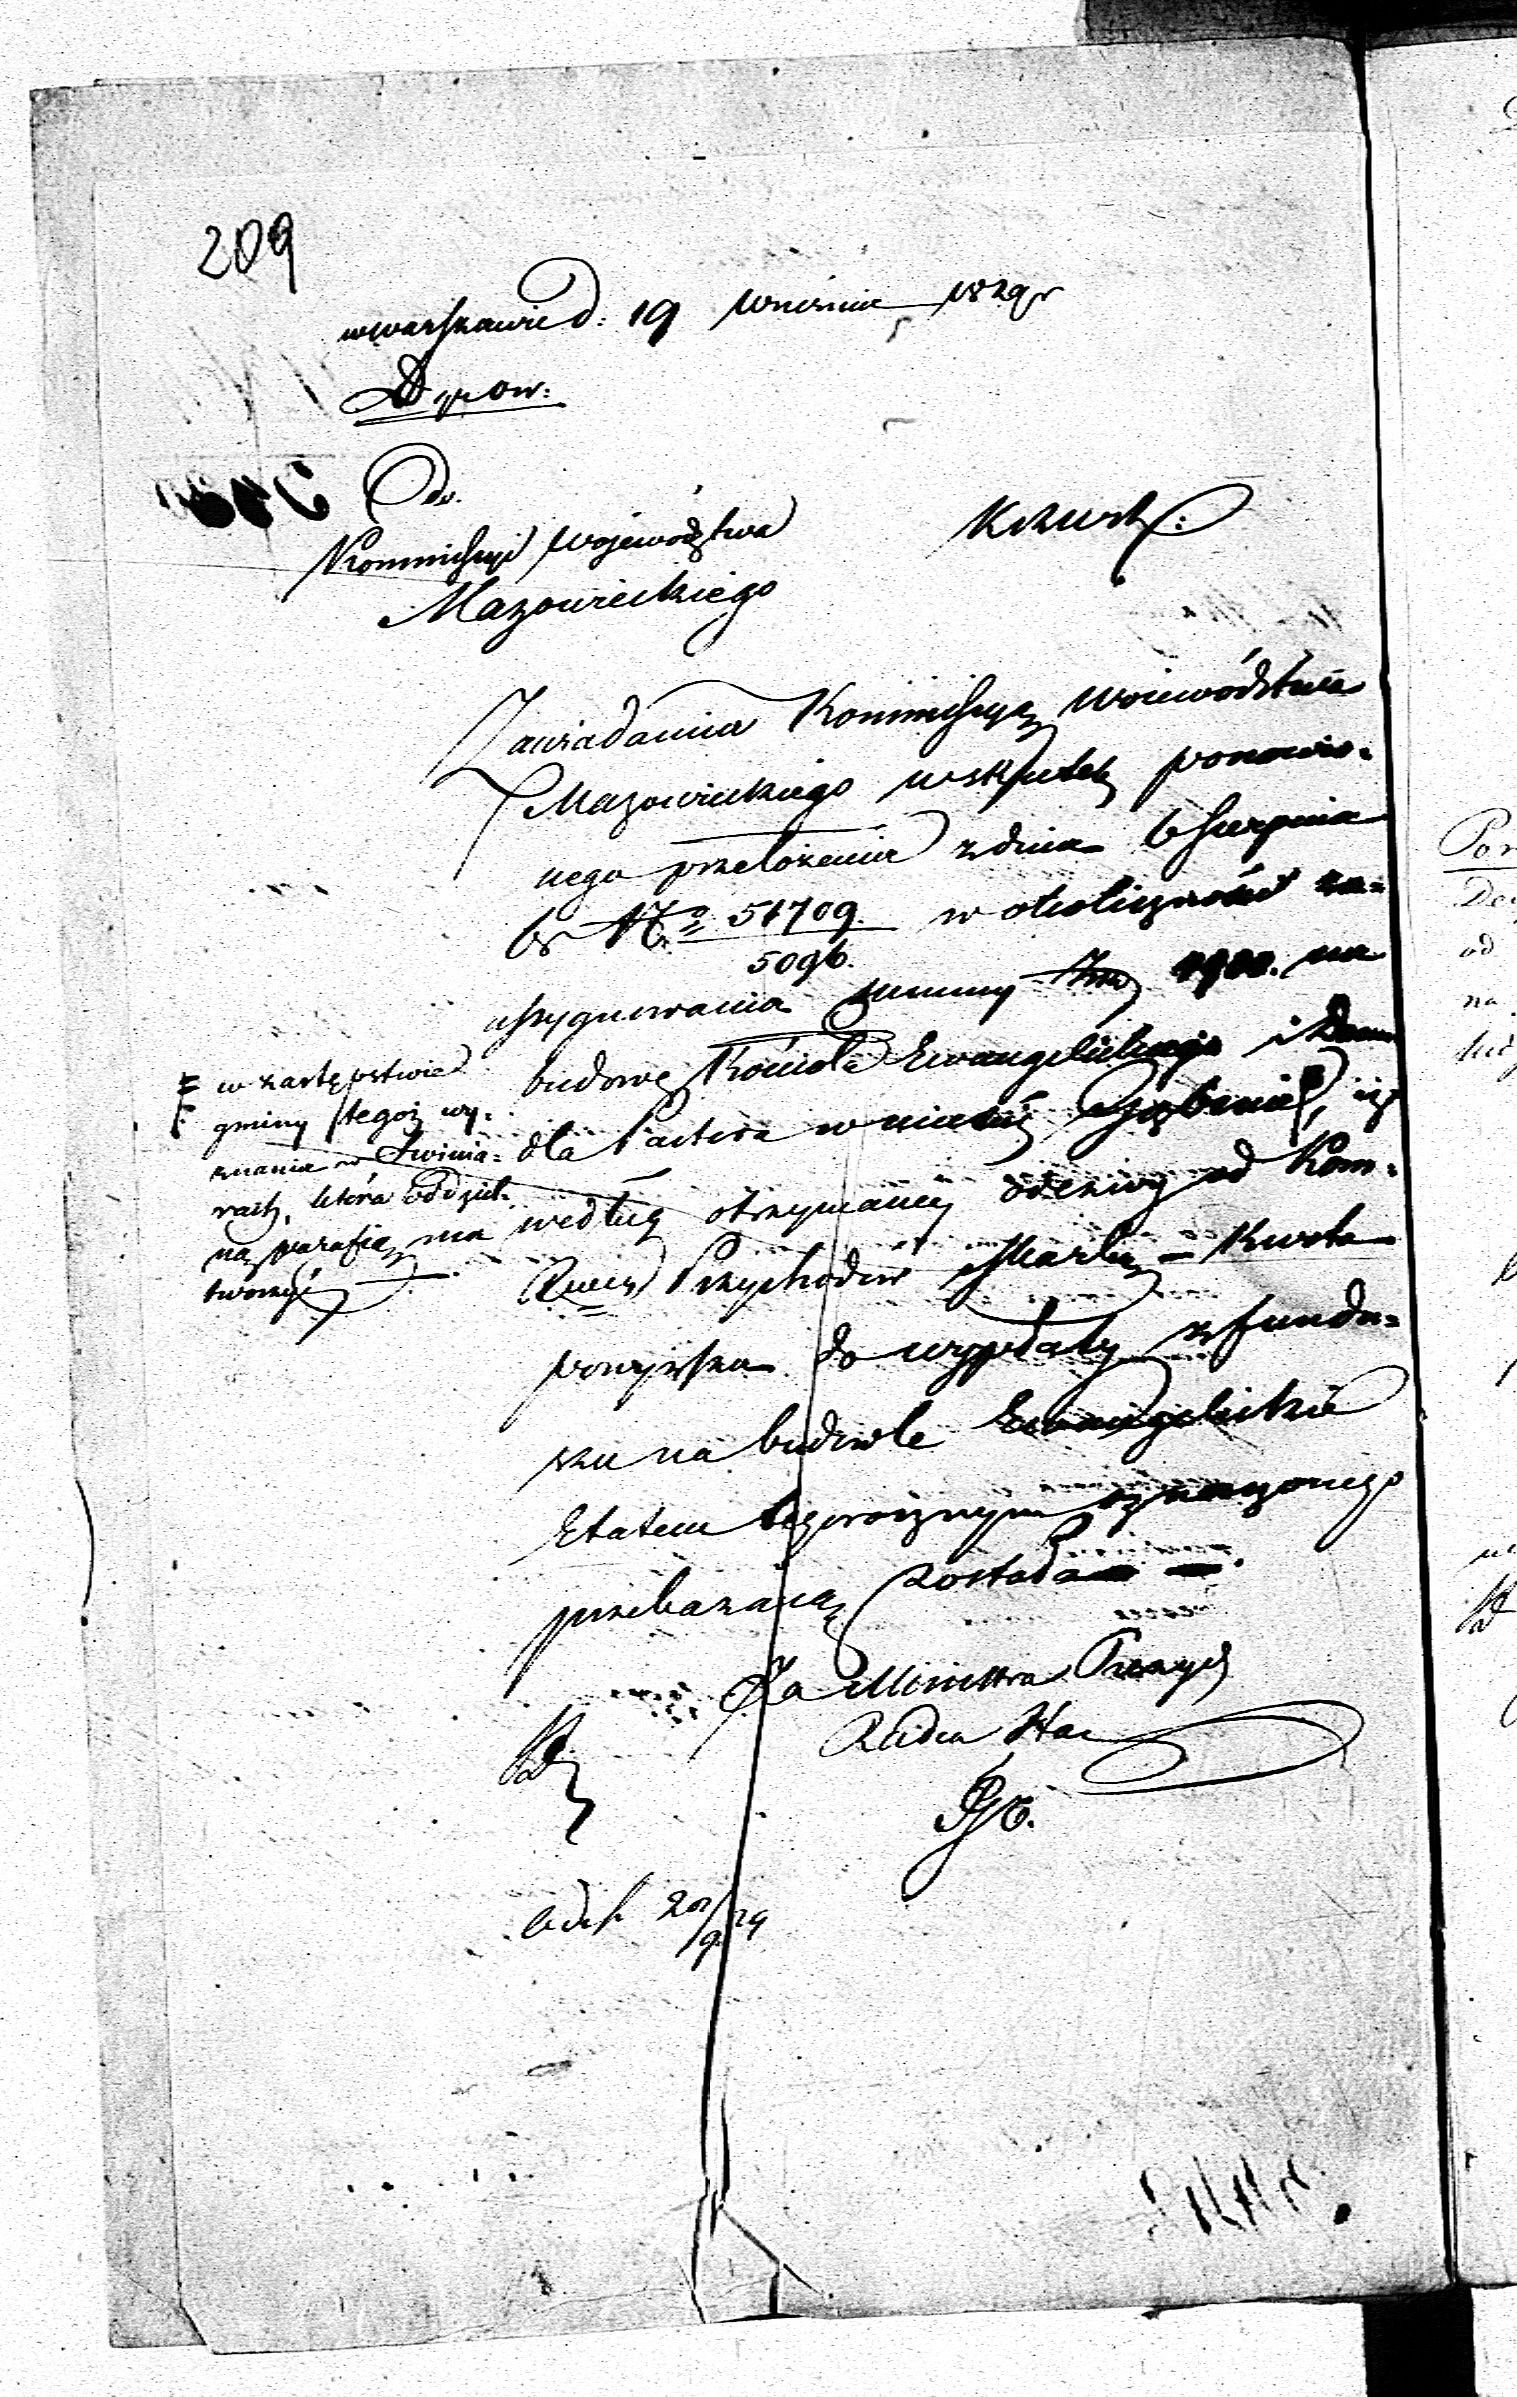 209
w Warszawie d: 19 Września 1829 r
Do
Kommissyi Województwa
Mazowieckiego
Zawiadamia Kommissyą Województwa
Mazowieckiego wskutek ponowio-
nego przełożenia z dnia 6 Sierpnia
br No 51709. w okoliczności za-
5096.
assygnowania summy na
budowę Kościoła Ewangelickiego i Domu
dla Pastora w mieście Gąbinie, iż
według otrzymaney odezwy od Kom-
Przychodów i Skarbu - Kwota
powyższa do wypłaty z fundu-
szu na budowle Ewangelickie
Etatem tegorocznym oznaczonego
przekazaną została
w zastępstwie
gminy tegoż wy-
znania w Świnia-
rach, która oddziel-
ną parafią ma
tworzyć
Za Ministra Prezyd
Radca Stan
20/9 29